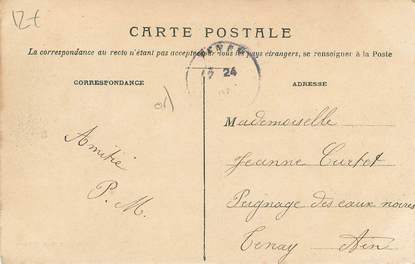 12€
CARTE POSTALE
La correspondance au recto n'étant pas acceptée par tous les pays étrangers, se renseigner à la Poste
TENAY
24
CORRESPONDANCE
ADRESSE
Amitié
P. M.
Mademoiselle
Jeanne Curtet
Peignage des eaux noires
Tenay Ain